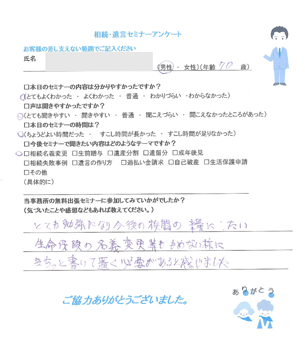 相続・遺言セミナーアンケート
お客様の差し支えない範囲でご記入ください
氏名
(男性 ・ 女性)(年齢 歳)
□本日のセミナーの内容は分かりやすかったですか?
(とてもよくわかった ・ よくわかった ・ 普通 ・ わかりづらい ・わからなかった)
□声は聞きやすかったですか?
(とても聞きやすい ・ 聞きやすい ・ 普通 ・ 聞こえづらい ・ 聞こえなかったところがあった)
□本日のセミナーの時間は?
(ちょうどよい時間だった ・ すこし時間が長かった ・ すこし時間が足りなかった)
□今後セミナーで聞きたい内容はどのようなテーマですか?
□相続名義変更 □生前贈与 □遺産分割 □遺留分 □成年後見
□相続失敗事例 □遺言の作り方 □過払い金請求 □自己破産 □生活保護申請
□その他
(具体的に)
当事務所の無料出張セミナーに参加してみていかがでしたか?
(気づいたことや感想などもあれば教えてください。)
とても勉強になり今後の相続の 糧に たい
生命保険の名義変更等もめない様に
きちっと書いて置く必要があると感じました
ご協力ありがとうございました。
ありがとう